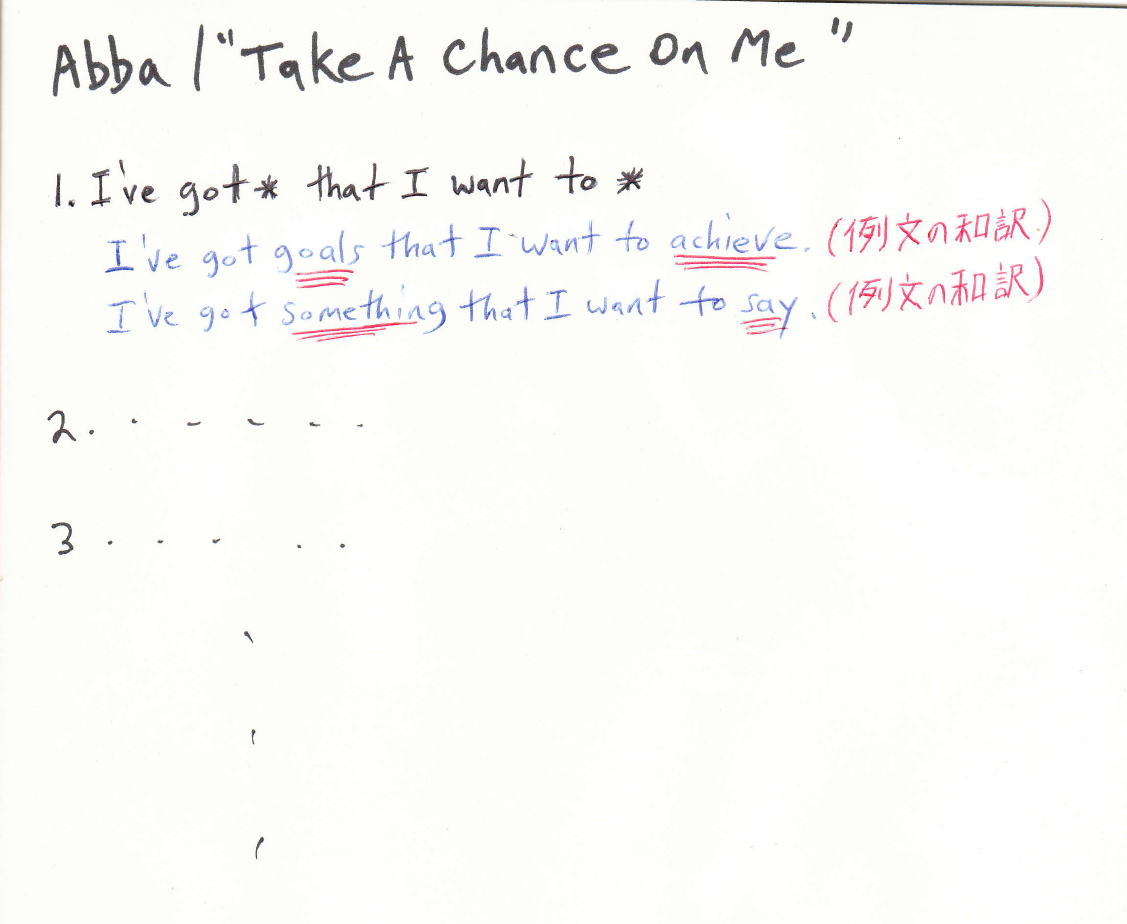 Abba / "Take A Chance On Me"
1. I've got * that I want to *
I've got goals that I want to achieve. (例文の和訳.)
I've got something that I want to say. (例文の和訳)
2. . - - - .
3 . . . . .